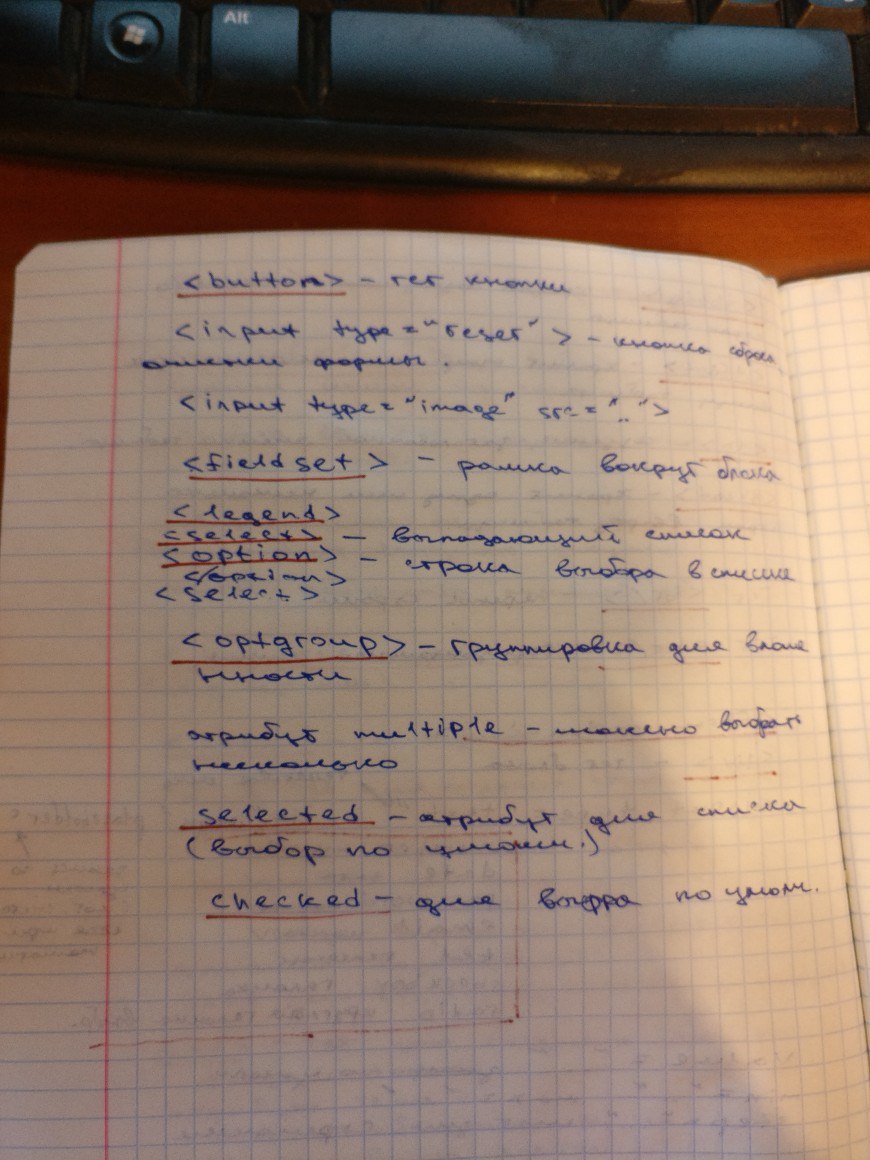 Alt
<button> – тег кнопки
<input type="reset"> – кнопка сброса
очистки формы.
<input type="image" src="..">
<fieldset> – рамка вокруг блока
<legend>
<select> – выпадающий список
<option> – строка выбора в списке
</option>
<select>
<optgroup> – группировка для вложе
нности
атрибут multiple – можно выбрать
несколько
selected – атрибут для списка
(выбор по умолч.)
checked – для выбора по умолч.